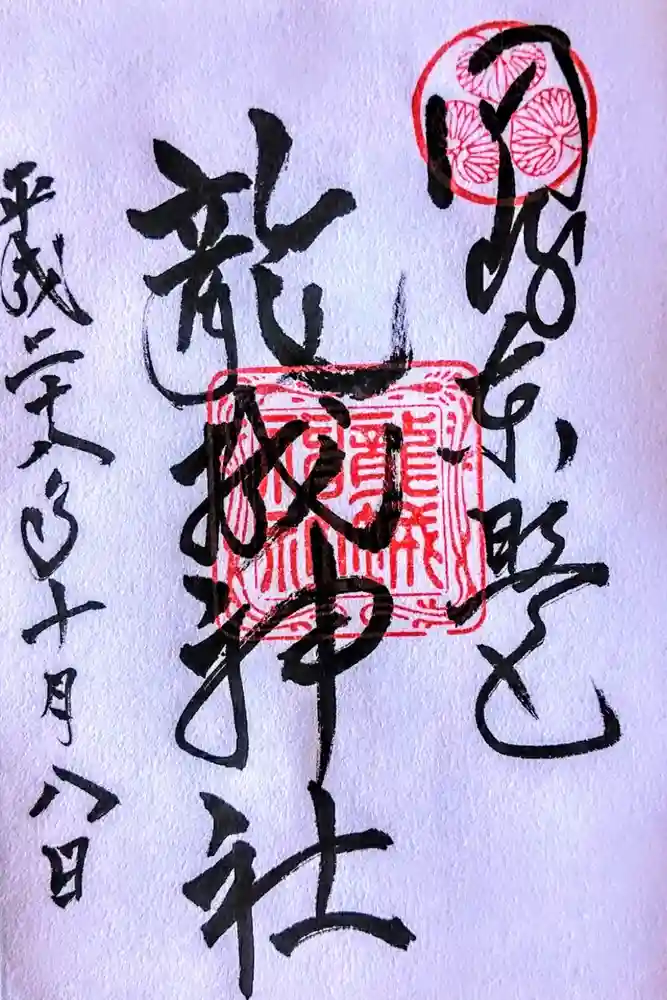 岡崎東照宮
龍城神社
龍城
神社
平成二十八年十月八日